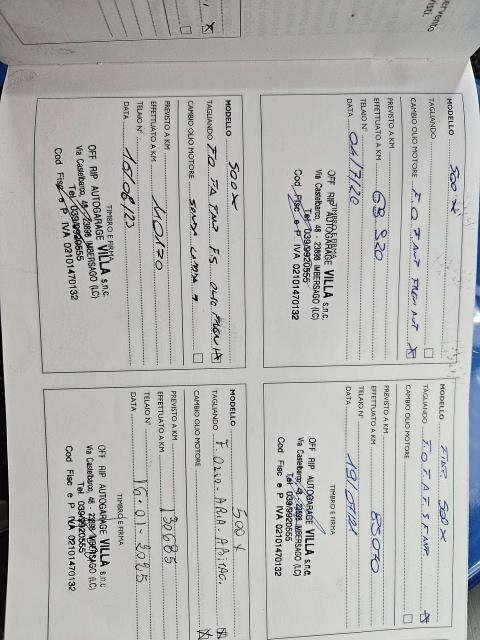 MODELLO 500 X
TAGLIANDO
CAMBIO OLIO MOTORE F.O F ANT FREN ANT X
PREVISTO A KM
EFFETTUATO A KM 68 920
TELAIO N°
DATA
TIMBRO E FIRMA
OFF RIP AUTOGARAGE VILLA s.n.c.
Via Castelbarco, 48 - 23898 IMBERSAGO (LC)
Tel. 039/9920555
Cod Fisc e P IVA 02101470132
MODELLO FIAT 500 X
TAGLIANDO X
CAMBIO OLIO MOTORE
PREVISTO A KM
EFFETTUATO A KM 85070
TELAIO N°
DATA 19/07/21
TIMBRO E FIRMA
OFF RIP AUTOGARAGE VILLA s.n.c.
Via Castelbarco, 48 - 23898 IMBERSAGO (LC)
Tel 039/9920555
Cod Fisc e P IVA 02101470132
MODELLO 500 X
TAGLIANDO OLIO FRENI X
CAMBIO OLIO MOTORE
PREVISTO A KM
EFFETTUATO A KM 110170
TELAIO N°
DATA 16/06/23
TIMBRO E FIRMA
OFF RIP AUTOGARAGE VILLA s.n.c.
Via Castelbarco, 48 - 23898 IMBERSAGO (LC)
Tel 039/9920555
Cod Fisc e P IVA 02101470132
MODELLO 500 X
TAGLIANDO F. OLIO - ARIA - ABITAC. X
CAMBIO OLIO MOTORE X
PREVISTO A KM
EFFETTUATO A KM 130685
TELAIO N°
DATA 16-01-2025
TIMBRO E FIRMA
OFF RIP AUTOGARAGE VILLA s.n.c.
Via Castelbarco, 48 - 23898 IMBERSAGO (LC)
Tel 039/9920555
Cod Fisc e P IVA 02101470132